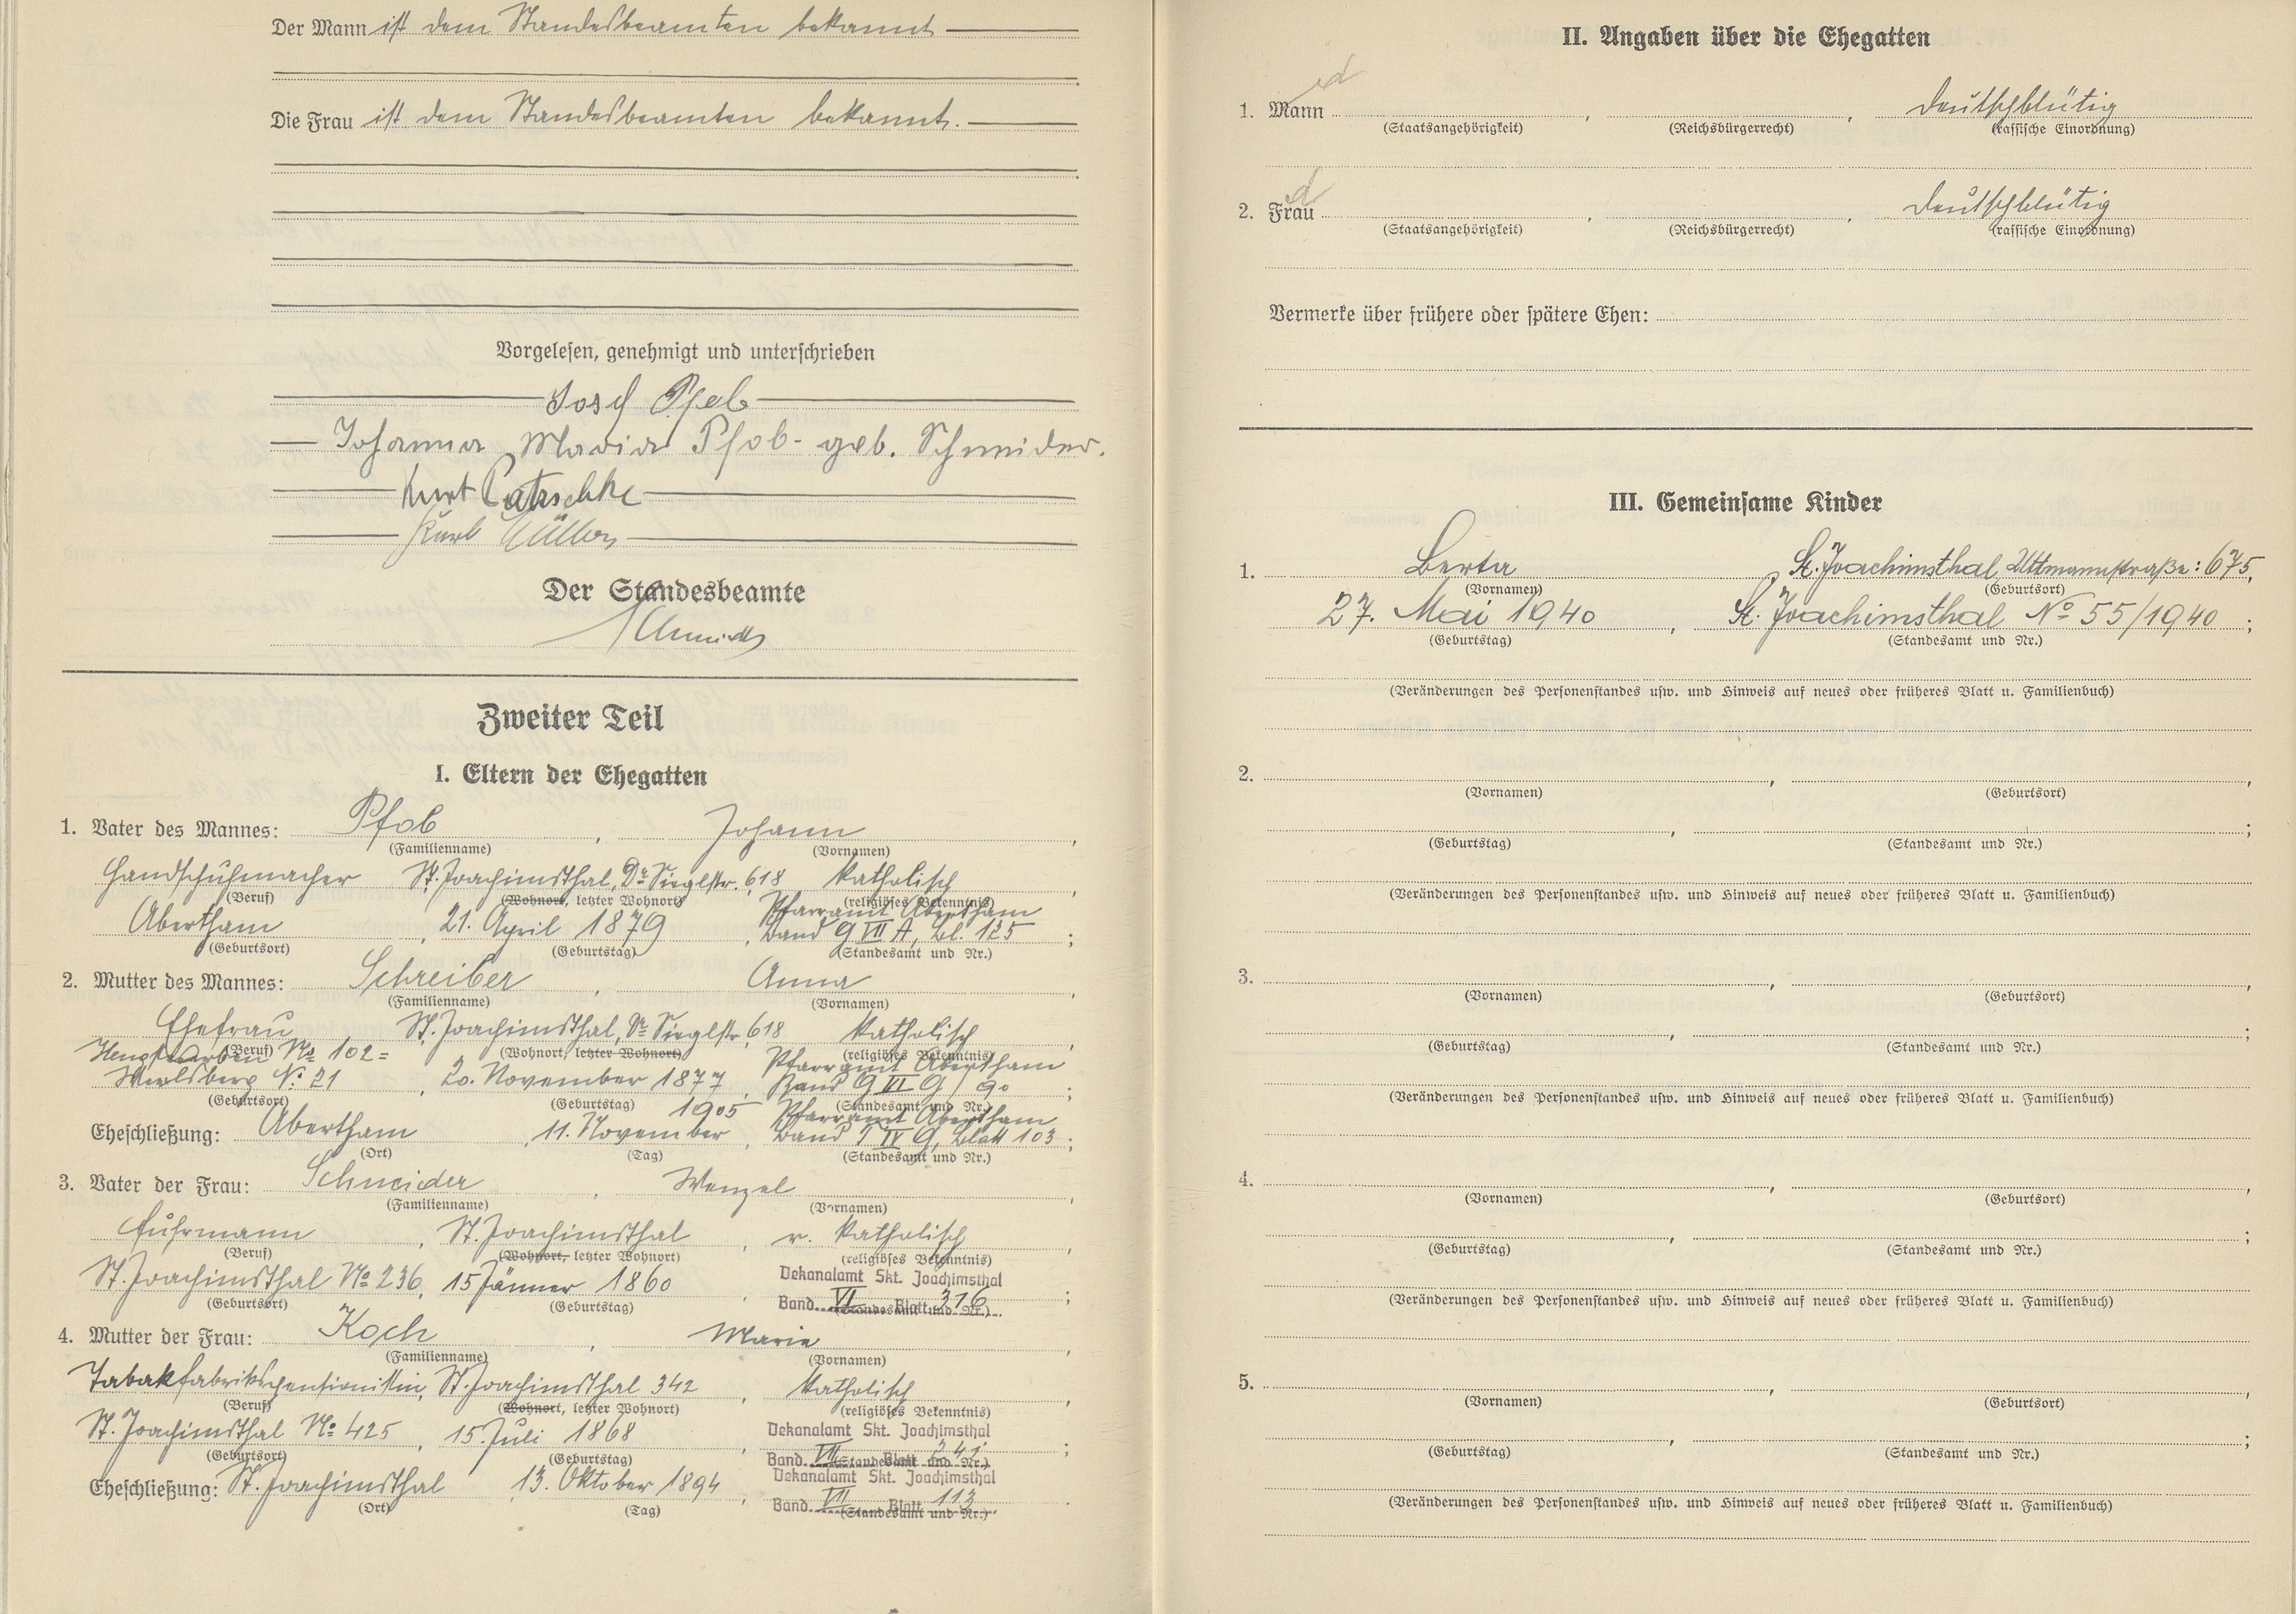 Der Mann ist dem Standesbeamten bekannt
Die Frau ist dem Standesbeamten bekannt.
Vorgelesen, genehmigt und unterschrieben
Josef Pfob
Johanna Maria Pfob - geb. Schneider.
Kurt Patzschke
Karl
Der Standesbeamte
Zweiter Teil
I. Eltern der Ehegatten
1. Vater des Mannes: Pfob, Johann,
(Familienname) (Vornamen)
Handschuhmacher St. Joachimsthal, Dr. Sieglstr. 618 katholisch,
(Beruf) (Wohnort, letzter Wohnort) (religiöses Bekenntnis)
Pfarramt Abertham
Abertham, 21. April 1879, Band 9 VII A, Bl. 125;
(Geburtsort) (Geburtstag) (Standesamt und Nr.)
2. Mutter des Mannes: Schreiber, Anna,
(Familienname) (Vornamen)
Ehefrau St. Joachimsthal, Dr. Sieglstr. 618 katholisch,
(Beruf) (Wohnort, letzter Wohnort) (religiöses Bekenntnis)
Hengstererben No 102 = Pfarramt Abertham
Werlsberg No. 21, 20. November 1877, Band 9 VI 9/90;
(Geburtsort) (Geburtstag) (Standesamt und Nr.)
1905 Pfarramt Abertham
Eheschließung: Abertham, 11. November, Band IV 9, Blatt 103;
(Ort) (Tag) (Standesamt und Nr.)
3. Vater der Frau: Schneider, Wenzel,
(Familienname) (Vornamen)
Fuhrmann, St. Joachimsthal, r. katholisch,
(Beruf) (Wohnort, letzter Wohnort) (religiöses Bekenntnis)
Dekanalamt Skt. Joachimsthal
St. Joachimsthal No 236, 15 Jänner 1860, Band VI Blatt 316;
(Geburtsort) (Geburtstag) (Standesamt und Nr.)
4. Mutter der Frau: Koch, Marie,
(Familienname) (Vornamen)
Tabakfabrikspensionistin, St. Joachimsthal 342, katholisch,
(Beruf) (Wohnort, letzter Wohnort) (religiöses Bekenntnis)
Dekanalamt Skt. Joachimsthal
St. Joachimsthal No 425, 15. Juli 1868, Band VII Blatt 341;
(Geburtsort) (Geburtstag) (Standesamt und Nr.)
Dekanalamt Skt. Joachimsthal
Eheschließung: St. Joachimsthal, 13. Oktober 1894, Band VII Blatt 113.
(Ort) (Tag) (Standesamt und Nr.)
II. Angaben über die Ehegatten
d
1. Mann, , deutschblütig
(Staatsangehörigkeit) (Reichsbürgerrecht) (rassische Einordnung)
d
2. Frau, , deutschblütig
(Staatsangehörigkeit) (Reichsbürgerrecht) (rassische Einordnung)
Vermerke über frühere oder spätere Ehen:
III. Gemeinsame Kinder
1. Berta, St. Joachimsthal, Uttmannstraße: 675,
(Vornamen) (Geburtsort)
27. Mai 1940, St. Joachimsthal No 55/1940;
(Geburtstag) (Standesamt und Nr.)
(Veränderungen des Personenstandes usw. und Hinweis auf neues oder früheres Blatt u. Familienbuch)
2. , ,
(Vornamen) (Geburtsort)
, ;
(Geburtstag) (Standesamt und Nr.)
(Veränderungen des Personenstandes usw. und Hinweis auf neues oder früheres Blatt u. Familienbuch)
3. , ,
(Vornamen) (Geburtsort)
, ;
(Geburtstag) (Standesamt und Nr.)
(Veränderungen des Personenstandes usw. und Hinweis auf neues oder früheres Blatt u. Familienbuch)
4. , ,
(Vornamen) (Geburtsort)
, ;
(Geburtstag) (Standesamt und Nr.)
(Veränderungen des Personenstandes usw. und Hinweis auf neues oder früheres Blatt u. Familienbuch)
5. , ,
(Vornamen) (Geburtsort)
, ;
(Geburtstag) (Standesamt und Nr.)
(Veränderungen des Personenstandes usw. und Hinweis auf neues oder früheres Blatt u. Familienbuch)